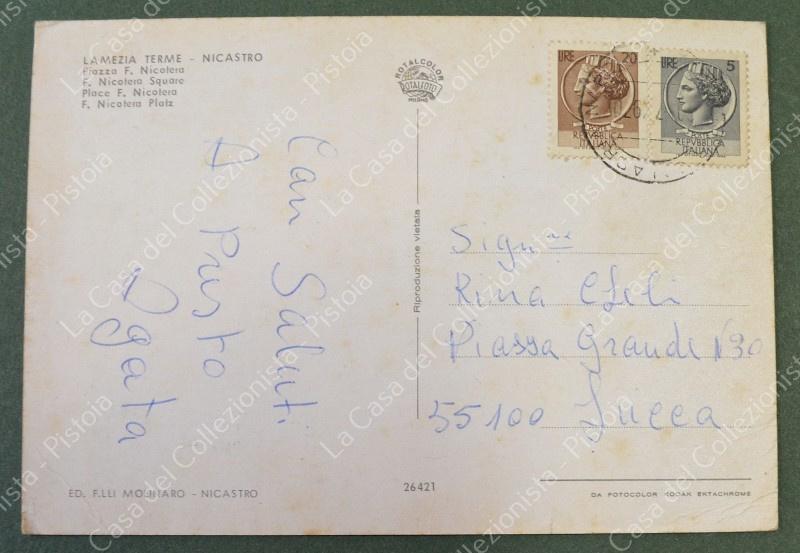 LAMEZIA TERME - NICASTRO
Piazza F. Nicotera
F. Nicotera Square
Place F. Nicotera
F. Nicotera Platz
ROTALCOLOR
ROTALFOTO
MILANO
LIRE 20
POSTE
REPVBBLICA
ITALIANA
LIRE 5
POSTE
REPVBBLICA
ITALIANA
Cari Saluti
A Presto
Agata
Riproduzione vietata
Sign.na
Rina
Piazza Grande N 30
55100 Lucca
ED. F.LLI MOLINARO - NICASTRO
26421
DA FOTOCOLOR KODAK EKTACHROME
La Casa del Collezionista - Pistoia